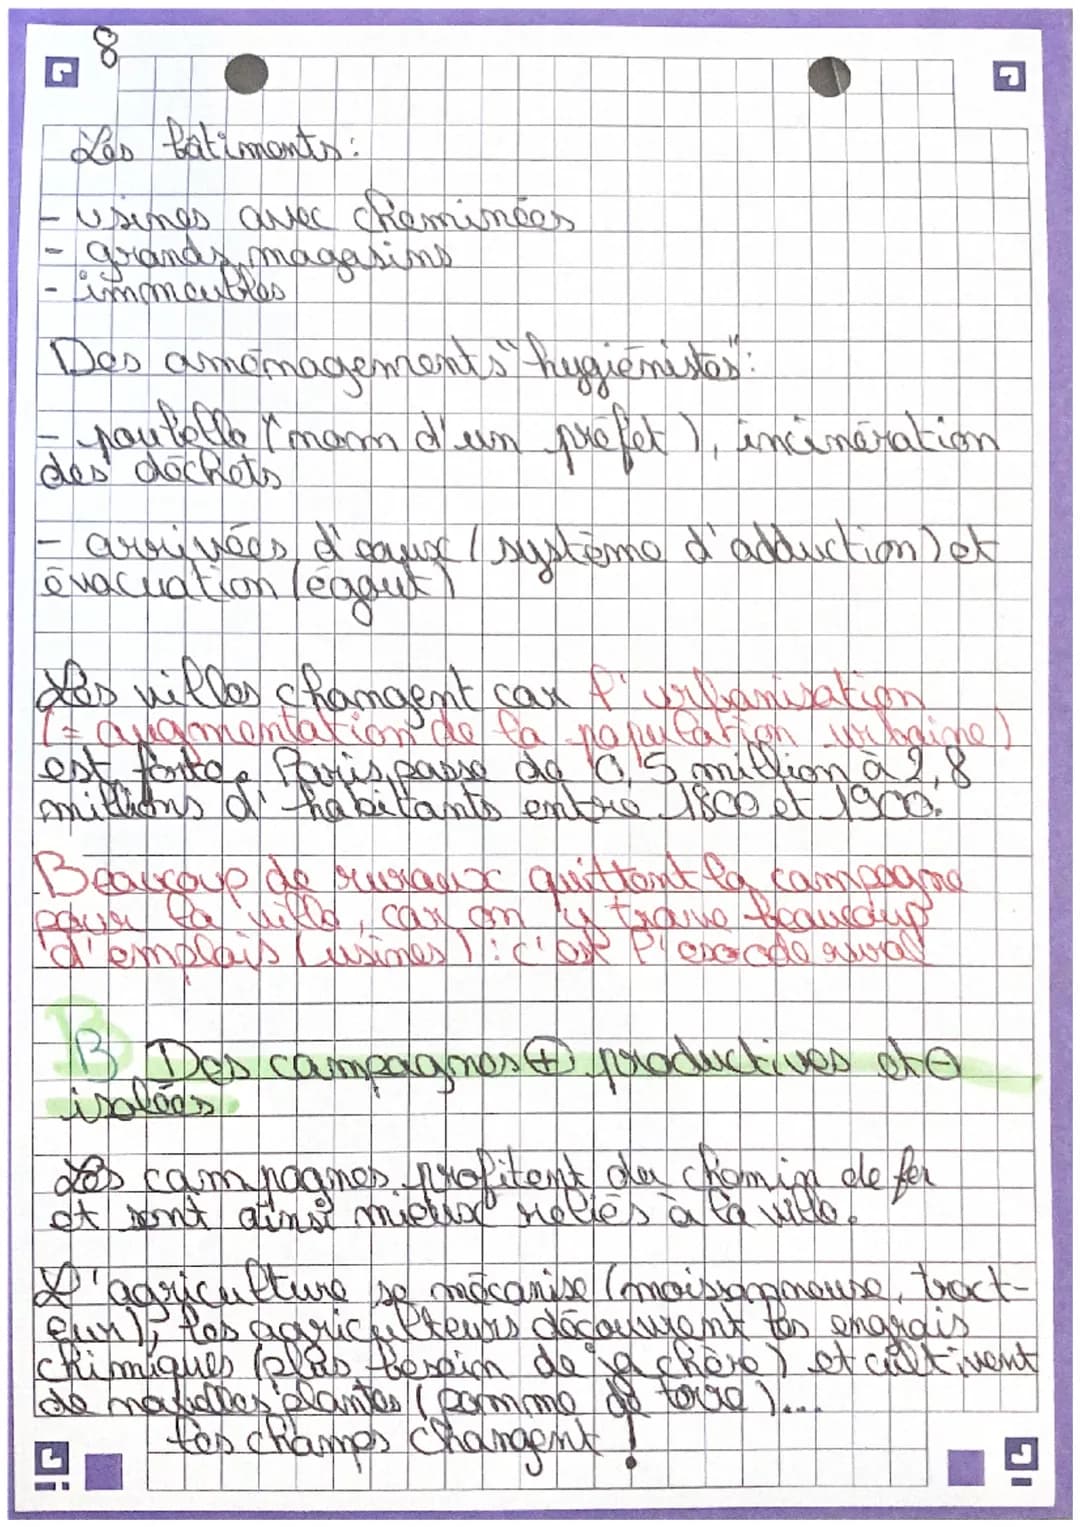 8
Les bâtiments:
- usines avec cheminées
- grands magasins
- immeubles
Des aménagements "hygiénistes":
- poubelle (nom d'un préfet), incinération
des déchets
- arrivées d'eaux (système d'adduction) et
évacuation (égout)
Les villes changent car l'urbanisation
(= augmentation de la population urbaine)
est forte. Paris passe de 0,5 million à 2,8
millions d'habitants entre 1800 et 1900.
Beaucoup de ruraux quittent la campagne
pour la ville, car on y trouve beaucoup
d'emplois (usines) : c'est l'exode rural
B Des campagnes ⊕ productives et ⊖
isolées
Les campagnes profitent du chemin de fer
et sont ainsi mieux reliés à la ville.
L'agriculture se mécanise (moissonneuse, tract-
eur), les agriculteurs découvrent les engrais
chimiques (plus besoin de jachère) et cultivent
de nouvelles plantes (pomme de terre)...
Les champs changent !